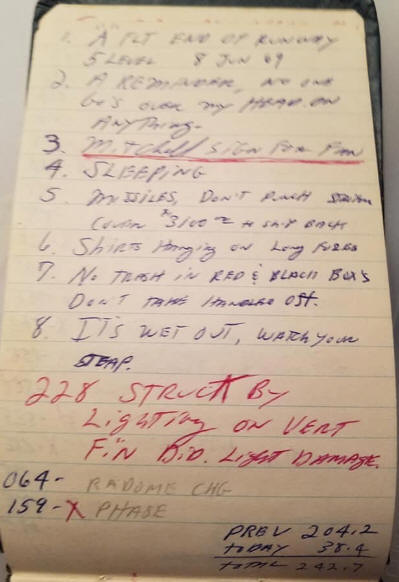 1. A FLT END OF RUNWAY
5 LEVEL 8 JUN 69
2. A REMINDER, NO ONE
GO'S OVER MY HEAD ON
ANYTHING.
3. Mitchell SIGN FOR FAN
4. SLEEPING
5. MISSILES, DON'T PUNCH
COVER $3100 00 to SHIP BACK
6. Shirts Hanging on Long
7. NO TRASH IN RED & BLACK BOX'S
DON'T TAKE HANDLES OFF.
8. IT'S WET OUT, WATCH YOUR
STEAP.
228 STRUCK BY
LIGHTING ON VERT
FIN DID. LIGHT DAMAGE.
064- RADOME CHG
159-X PHASE
PREV 204.2
TODAY 38.4
TOTAL 242.7